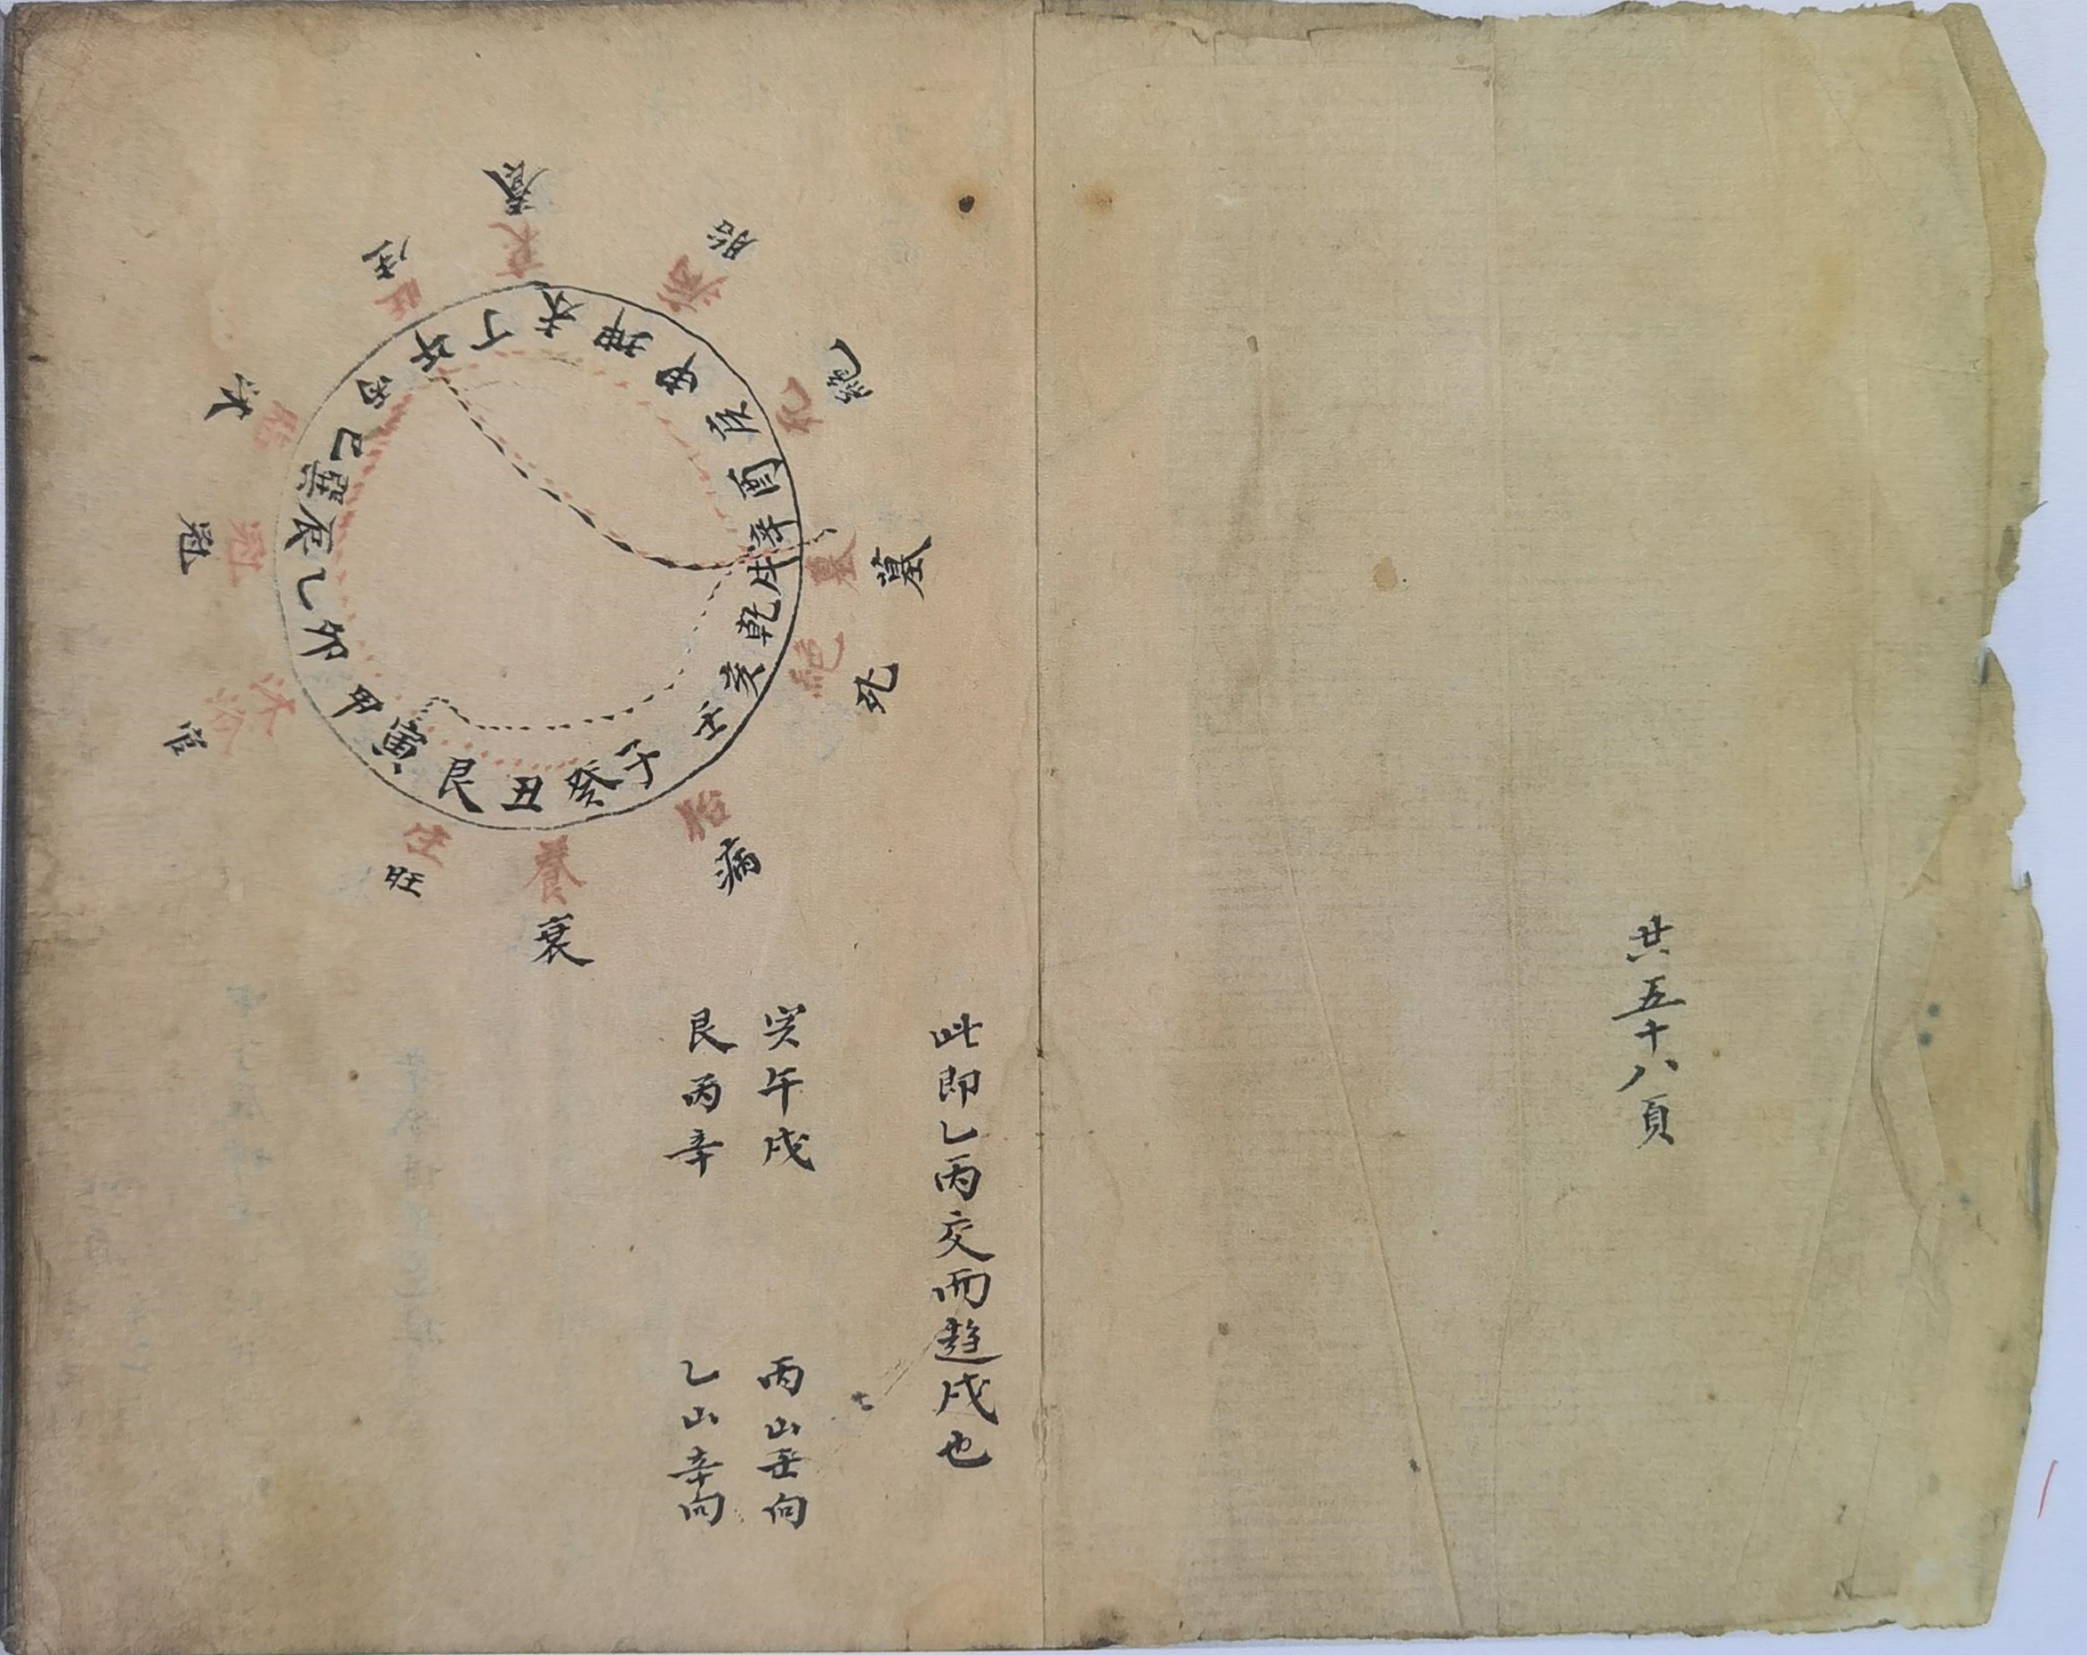 共五十八頁
此即乙丙交而趨戌也
丙山壬向
乙山辛向
午戌
艮丙辛
養
胎
絕
墓
死
病
衰
旺
官
冠
沐
生
衰
病
死
墓
絕
胎
養
生
沐浴
冠
旺
午丁未坤申庚酉辛戌乾亥壬子癸丑艮寅甲卯乙辰巽巳丙